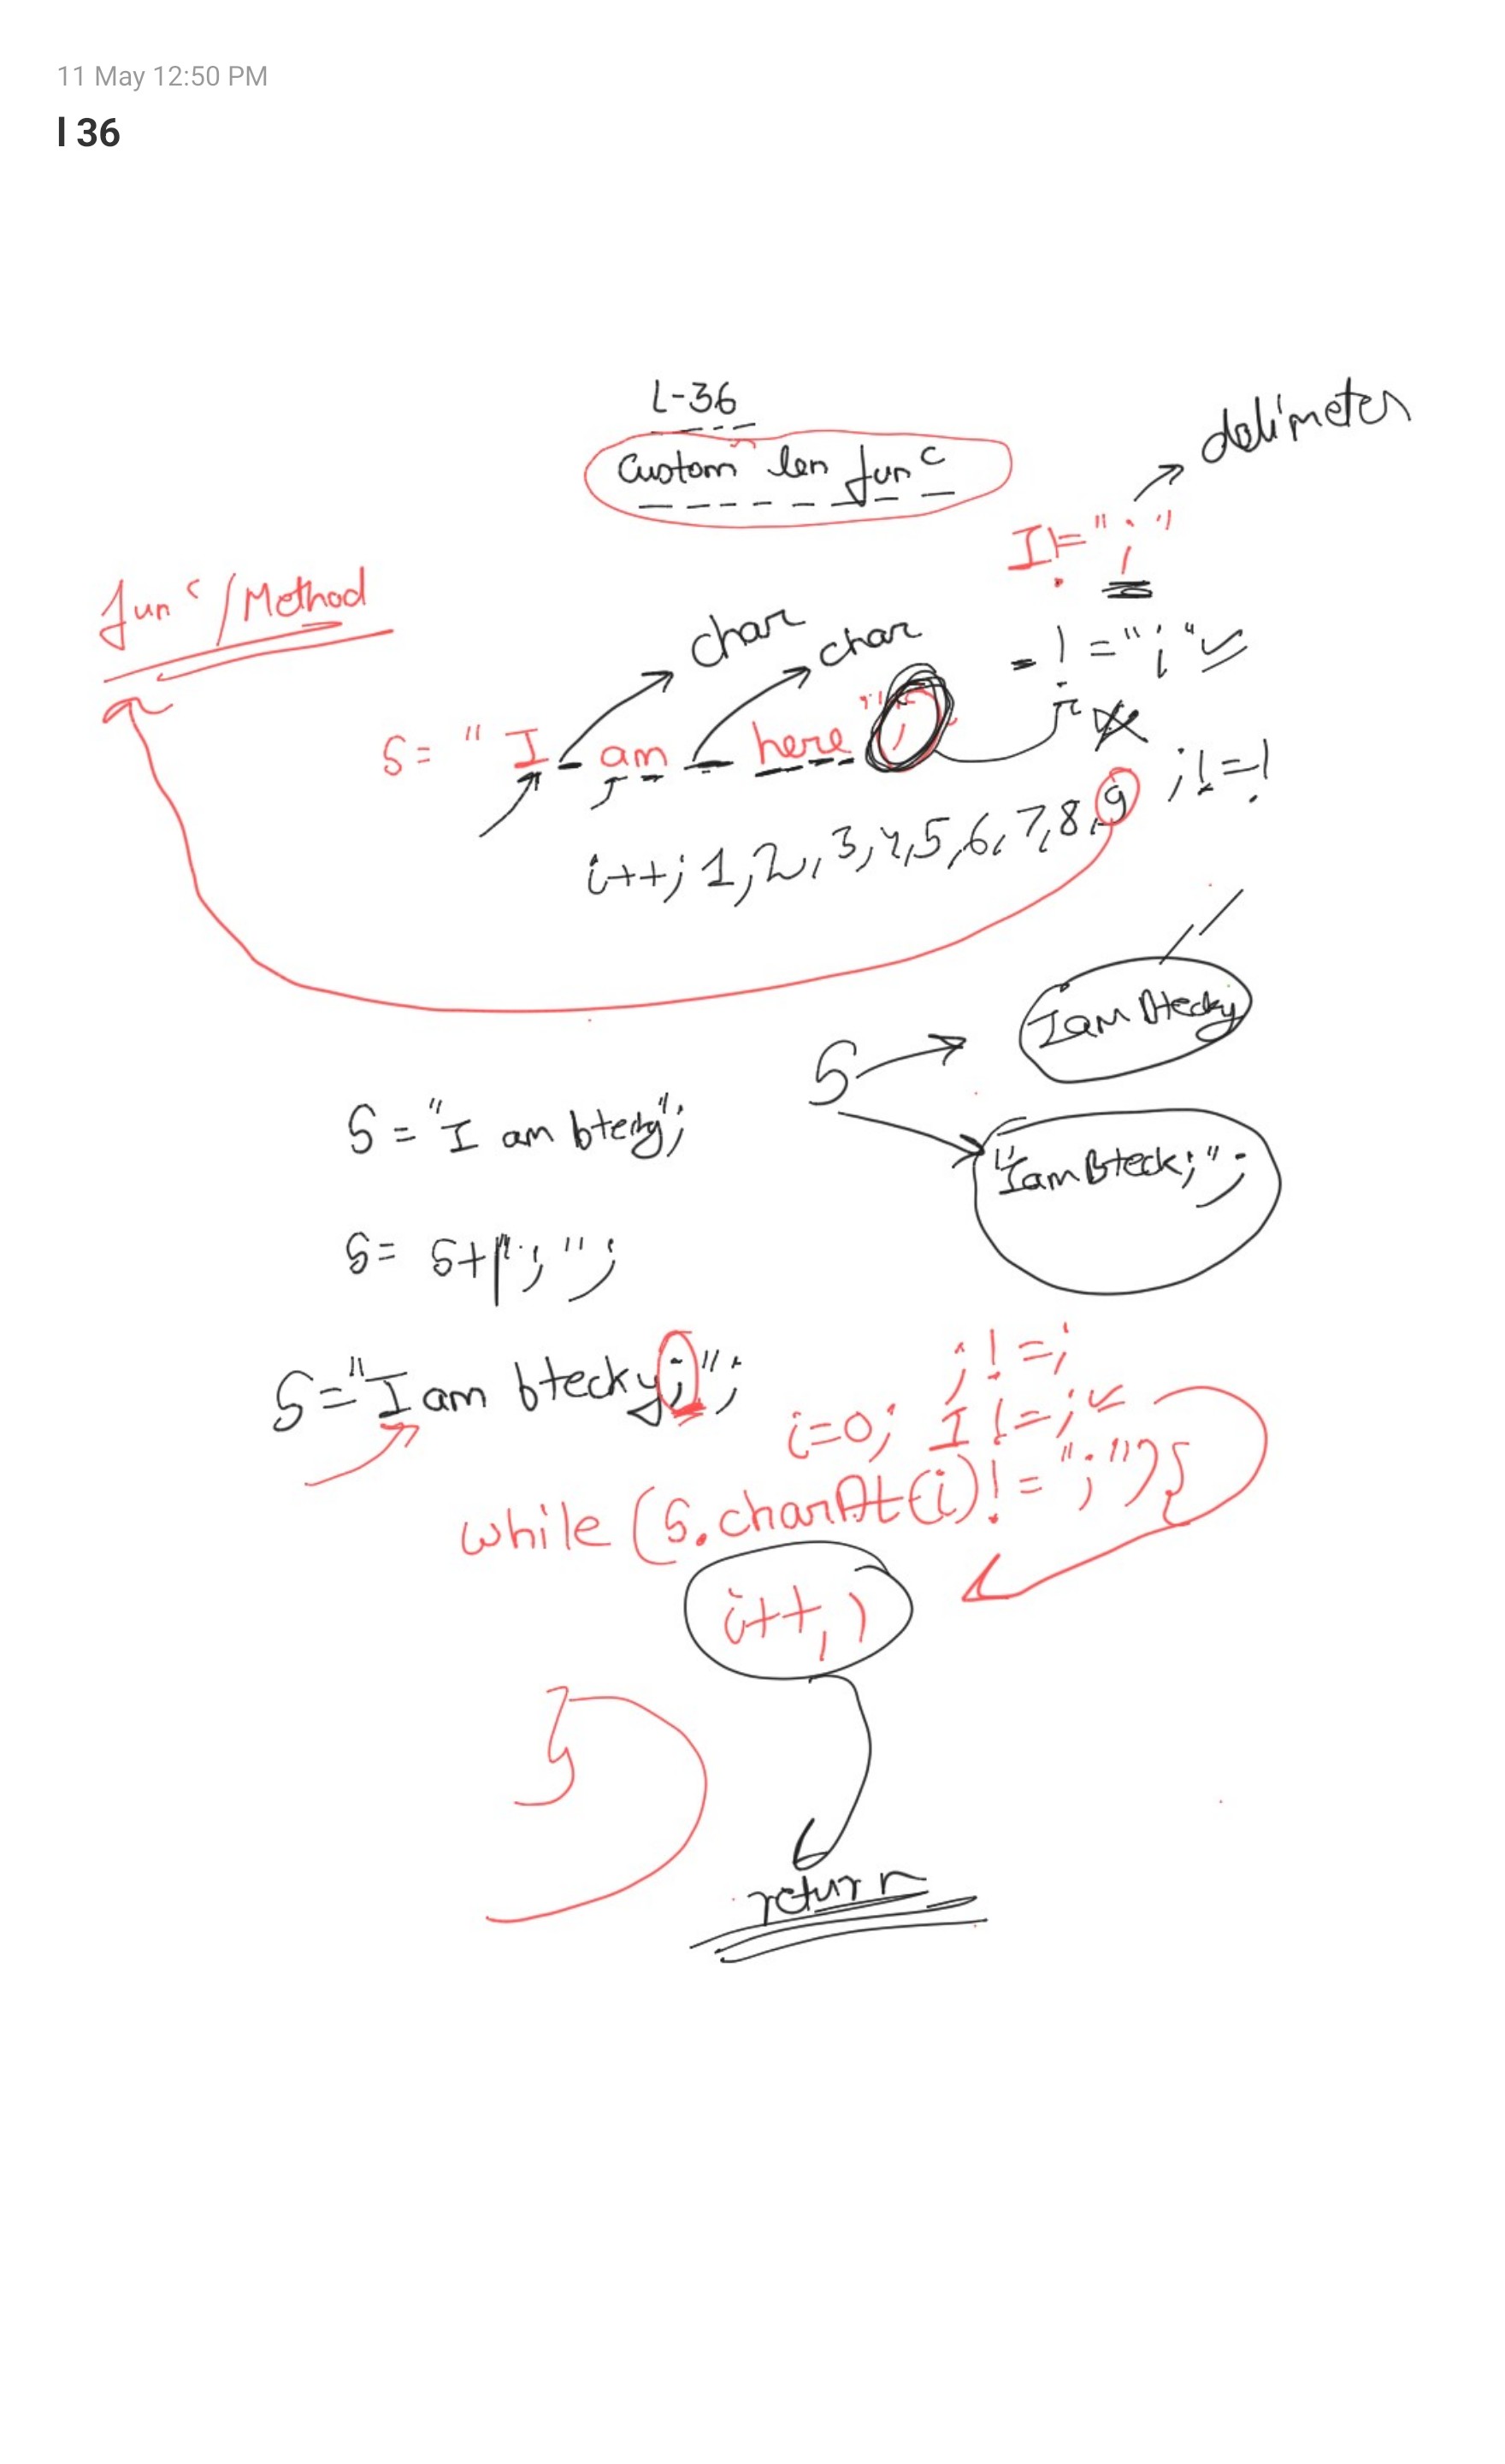 11 May 12:50 PM
l 36
L-36
Custom len func
delimeter
I!=";"
func/Method
char
char
-!=";"
S= "I - am - here";
;!=!
i++; 1,2,3,4,5,6,7,8,9
S
S="I am btecky";
"Iam Bteck;";
S= S+";";
S="I am btecky;";
;!=;
i=0; I!=;
while (S.charAt(i)!=";"){
i++;
}
return